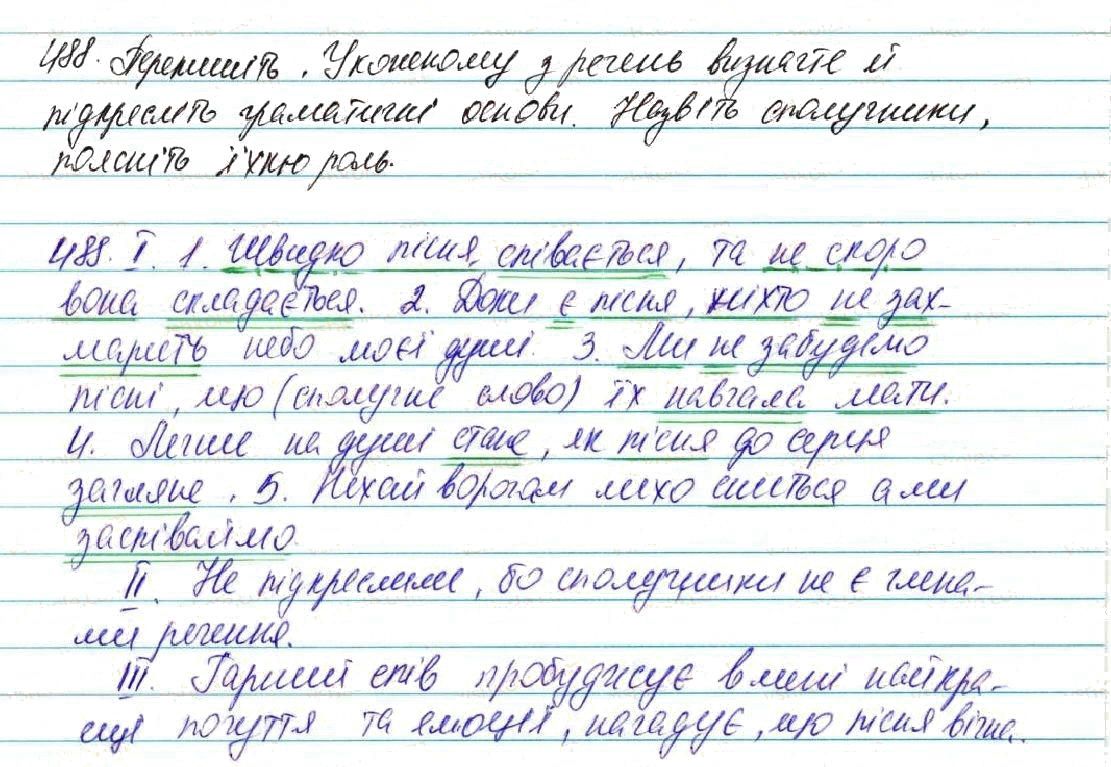 488. Перепишіть. У кожному з речень визначте й
підкресліть граматичні основи. Назвіть сполучники,
поясніть їхню роль.
488. I. 1. Швидко пісня співається, та не скоро
вона складається. 2. Доки є пісня, ніхто не зах-
марить небо моєї душі. 3. Ми не забудемо
пісні, що (сполучне слово) їх навчала мати.
4. Легше на душі стане, як пісня до серця
загляне. 5. Нехай ворогам лихо сниться а ми
заспіваймо.
II. Не підкреслили, бо сполучники не є члена-
ми речення.
III. Гарний спів пробуджує в мені найкра-
щі почуття та емоції, нагадує, що пісня вічна.